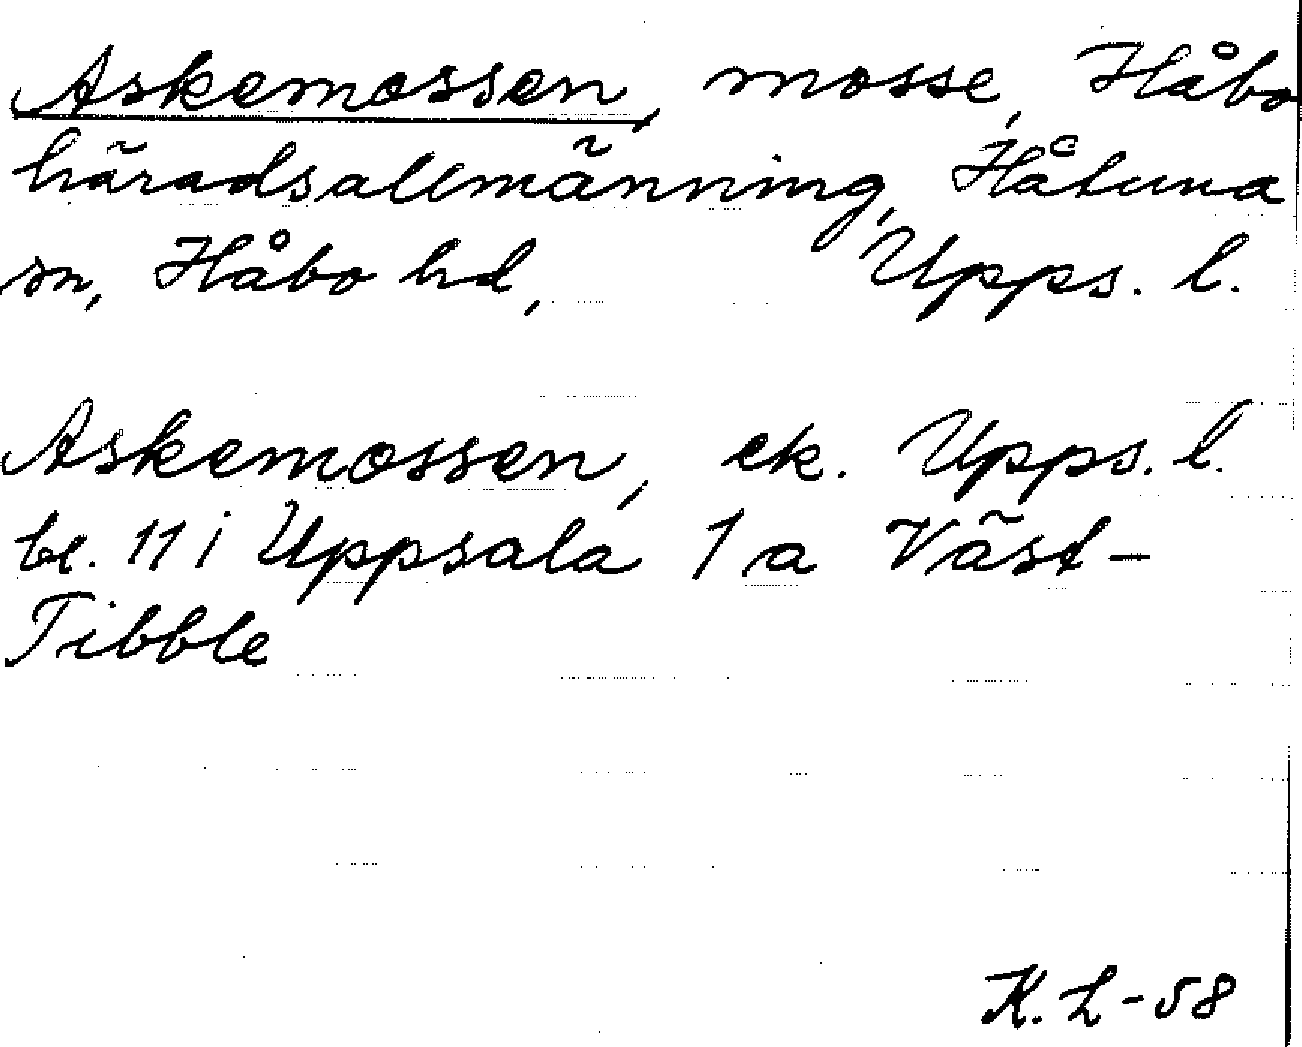 Askemossen, mosse, Håbo
häradsallmänning, Håtuna
sn, Håbo hd, Upps. l.
Askemossen, ek. Upps. l.
bl. 11 i Uppsala 1 a Väst-
Tibble
K. L-58